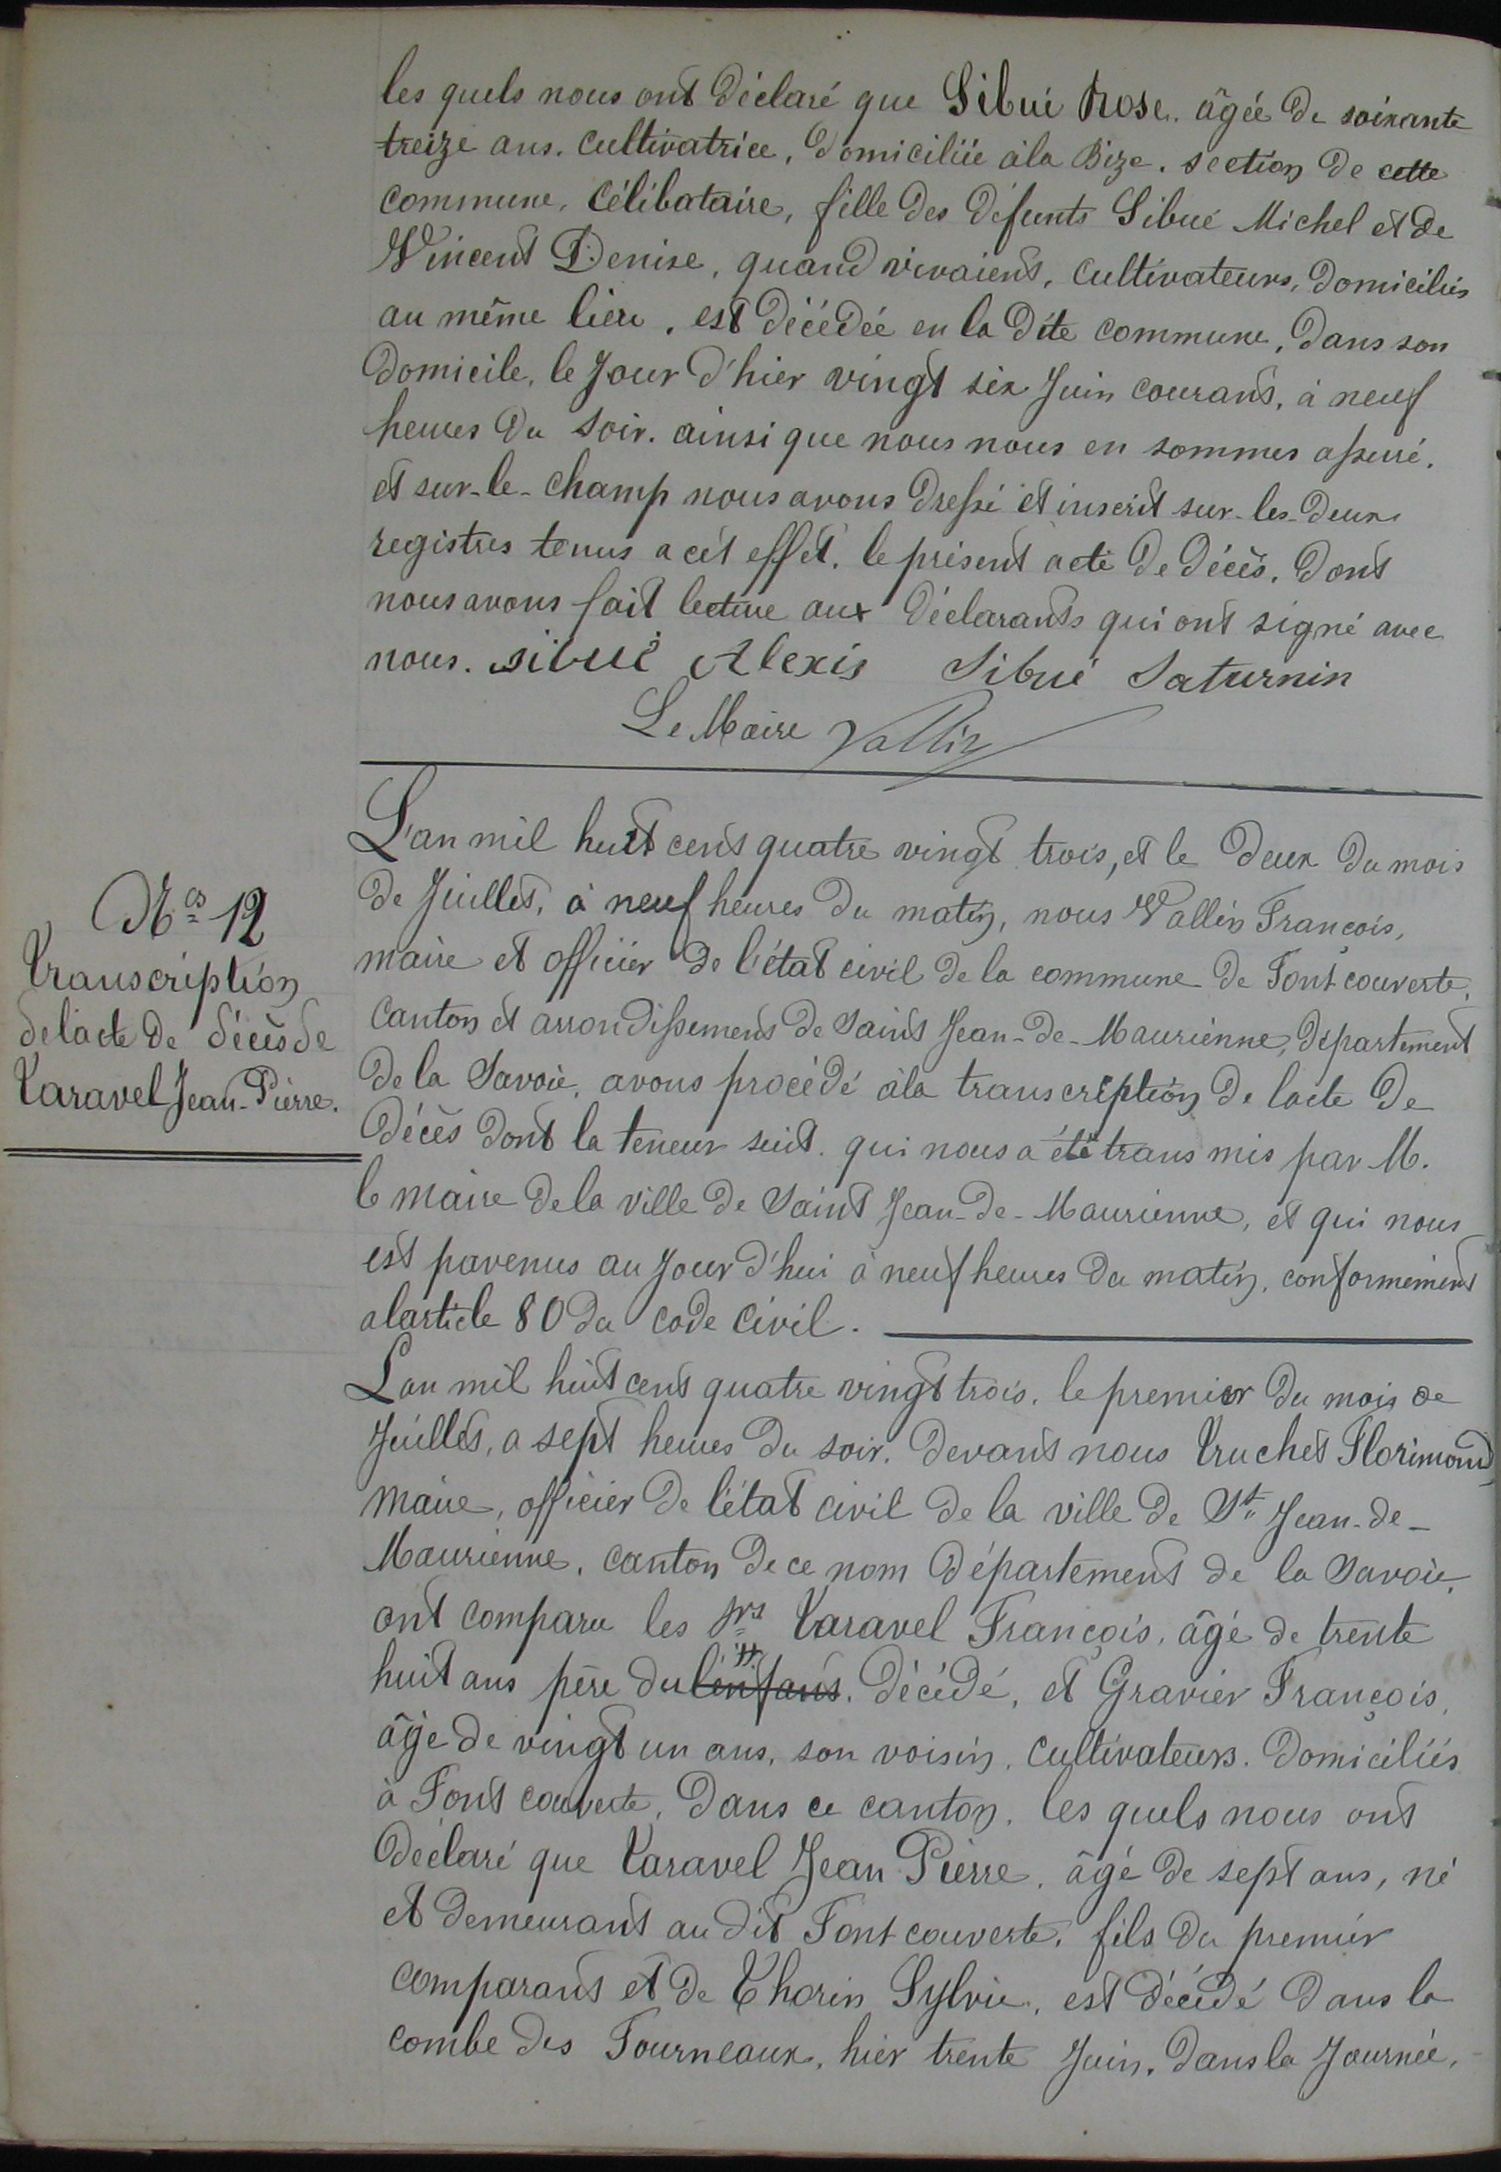 les quels nous ont déclaré que Sibué Rose. âgée de soixante
treize ans. cultivatrice, domiciliée à la Bize. section de cette
commune, célibataire, fille des défunts Sibué Michel et de
Vincent Denise, quand vivaient, cultivateurs, domiciliés
au même lieu, est décédée en la dite commune, dans son
domicile, le jour d'hier vingt six Juin courant, à neuf
heures du soir. ainsi que nous nous en sommes assuré.
et sur-le-champ nous avons dressé et inscrit sur les deux
registres tenus a cét effet. le présent acte de décès. dont
nous avons fait lecture aux déclarants qui ont signé avec
nous. sibué Alexis Sibué Saturnin
Le Maire Vallin
L'an mil huit cent quatre vingt trois, et le deux du mois
de Juillet, à neuf heures du matin, nous Vallin François,
maire et officier de l'état civil de la commune de Fontcouverte,
canton et arrondissement de Saint Jean-de-Maurienne, département
de la Savoie, avons procédé à la transcription de lacte de
décès dont la teneur suit. qui nous a été trans mis par M.
le maire de la ville de Saint Jean-de-Maurienne, et qui nous
est pavenus au jour d'hui à neuf heures du matin, conformément
a larticle 80 du code civil.
No 12
Transcription
de lacte de décès de
Taravel Jean-Pierre.
Lan mil huit cent quatre vingt trois. le premier du mois de
Juillet, a sept heures du soir. devant nous Truchet Florimond
maire, officier de l'état civil de la ville de St Jean-de-
Maurienne, canton de ce nom département de la Savoie,
ont comparu les Srs Taravel François, âgé de trente
huit ans père du l'enfant. décédé, et Gravier François,
âgé de vingt un ans, son voisin, cultivateurs. domiciliés
à Font couverte, dans ce canton. les quels nous ont
déclaré que Taravel Jean Pierre, âgé de sept ans, né
et demeurant au dit Font couverte, fils du premier
comparant et de Thorin Sylvie, est décédé dans la
combe des Fourneaux, hier trente Juin, dans la Journée,